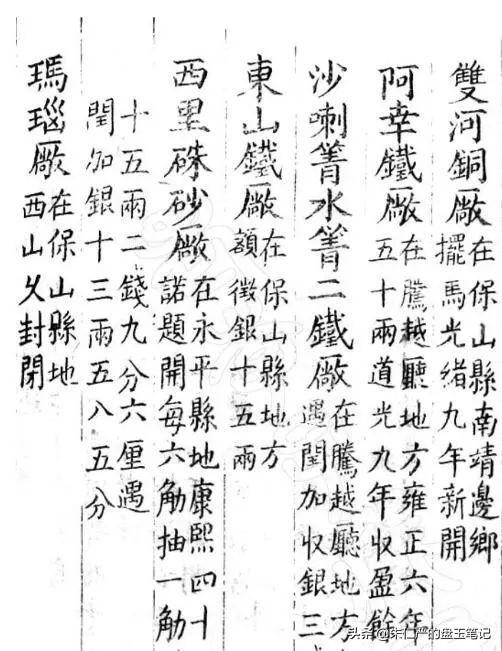 雙河銅厰在保山縣南靖邊鄉
擺馬光緒九年新開
阿幸鐵厰在騰越廳地方雍正六年
五十兩道光九年收盈餘
沙喇箐水箐二鐵厰在騰越廳地方
遇閏加收銀三
東山鐵厰在保山縣地方
額徵銀十五兩
西里硃砂厰在永平縣地康熙四十
諾題開每六觔抽一觔
十五兩二錢九分六厘遇
閏加銀十三兩五八 五分
瑪瑙厰在保山縣地
西山久封閉
头条 @朱仁严的盘玉笔记